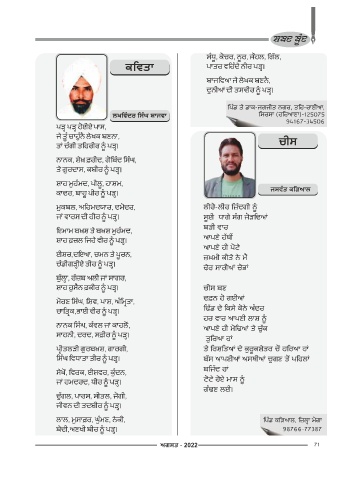 ਸ਼ਬਦ ਬੂੰਦ
ਕਵਿਤਾ
ਲਖਵਿੰਦਰ ਸਿੰਘ ਬਾਜਵਾ
ਪੜ੍ਹ ਪੜ੍ਹ ਹੋਈਏ ਪਾਸ,
ਜੇ ਤੂੰ ਚਾਹੁੰਨੈਂ ਲੇਖਕ ਬਣਨਾ,
ਤਾਂ ਚੰਗੀ ਤਹਿਰੀਰ ਨੂੰ ਪੜ੍ਹ।
ਨਾਨਕ, ਸ਼ੇਖ਼ ਫ਼ਰੀਦ, ਗੋਬਿੰਦ ਸਿੰਘ,
ਤੇ ਗੁਰਦਾਸ, ਕਬੀਰ ਨੂੰ ਪੜ੍ਹ।
ਸ਼ਾਹ ਮੁਹੰਮਦ, ਪੀਲੂ, ਹਾਸ਼ਮ,
ਕਾਦਰ, ਬਾਹੂ ਪੀਰ ਨੂੰ ਪੜ੍ਹ।
ਮੁਕਬਲ, ਅਹਿਮਦਯਾਰ, ਦਮੋਦਰ,
ਜਾਂ ਵਾਰਸ ਦੀ ਹੀਰ ਨੂੰ ਪੜ੍ਹ।
ਇਮਾਮ ਬਖ਼ਸ਼ ਤੇ ਬਖਸ ਮੁਹੰਮਦ,
ਸ਼ਾਹ ਫ਼ਜ਼ਲ ਜਿਹੇ ਵੀਰ ਨੂੰ ਪੜ੍ਹ।
ਈਸ਼ਰ,ਦਇਆ, ਚਮਨ ਤੇ ਪੂਰਨ,
ਚੰਡੀਗੜ੍ਹੀਏ ਤੀਰ ਨੂੰ ਪੜ੍ਹ।
ਬੁੱਲ੍ਹਾ, ਰੱਜ਼ਬ ਅਲੀ ਜਾਂ ਸਾਗਰ,
ਸ਼ਾਹ ਹੁਸੈਨ ਫ਼ਕੀਰ ਨੂੰ ਪੜ੍ਹ।
ਮੋਹਣ ਸਿੰਘ, ਸ਼ਿਵ, ਪਾਸ਼, ਅੰਮ੍ਰਿਤਾ,
ਚਾਤ੍ਰਿਕ,ਭਾਈ ਵੀਰ ਨੂੰ ਪੜ੍ਹ।
ਨਾਨਕ ਸਿੰਘ, ਕੰਵਲ ਜਾਂ ਕਾਹਲੋਂ,
ਸਾਹਨੀ, ਦਰਦ, ਸਫ਼ੀਰ ਨੂੰ ਪੜ੍ਹ।
ਪ੍ਰੀਤਲੜੀ ਗੁਰਬਖ਼ਸ਼, ਗਾਰਗੀ,
ਸਿੰਘ ਵਿਧਾਤਾ ਤੀਰ ਨੂੰ ਪੜ੍ਹ।
ਸੇਖੋਂ, ਵਿਰਕ, ਈਸ਼ਵਰ, ਕੁੰਦਨ,
ਜਾਂ ਹਮਦਰਦ, ਧੀਰ ਨੂੰ ਪੜ੍ਹ।
ਦੁੱਗਲ, ਪਾਰਸ, ਸੀਤਲ, ਜੋਗੀ,
ਜੀਵਨ ਦੀ ਤਦਬੀਰ ਨੂੰ ਪੜ੍ਹ।
ਲਾਲ, ਮੁਸਾਫ਼ਰ, ਘੁੰਮਣ, ਨੇਕੀ,
ਬੇਦੀ,ਅਣਖੀ ਬੀਰ ਨੂੰ ਪੜ੍ਹ।
ਸੰਧੂ, ਕੇਸਰ, ਨੂਰ, ਸੋਹਲ, ਗਿੱਲ,
ਪਾਤਰ ਵਹਿੰਦੇ ਨੀਰ ਪੜ੍ਹ।
ਬਾਜਵਿਆ ਜੇ ਲੇਖਕ ਬਣਨੈ,
ਦੁਨੀਆਂ ਦੀ ਤਸਵੀਰ ਨੂੰ ਪੜ੍ਹ।
ਪਿੰਡ ਤੇ ਡਾਕ-ਜਗਜੀਤ ਨਗਰ, ਤਹਿ-ਰਾਣੀਆਂ,
ਸਿਰਸਾ (ਹਰਿਆਣਾ)-125075
94167-34506
ਚੀਸ
ਜਸਵੰਤ ਕੜਿਆਲ
ਲੀਰੋ-ਲੀਰ ਜ਼ਿੰਦਗੀ ਨੂੰ
ਸੂਈ ਧਾਗੇ ਸੰਗ ਜੋੜਦਿਆਂ
ਬੜੀ ਵਾਰ
ਆਪਣੇ ਹੱਥੀਂ
ਆਪਣੇ ਹੀ ਪੋਟੇ
ਜ਼ਖ਼ਮੀ ਕੀਤੇ ਨੇ ਮੈਂ
ਹੋਰ ਸਾਰੀਆਂ ਚੋਭਾਂ
ਚੀਸ ਬਣ
ਦਫ਼ਨ ਹੋ ਗਈਆਂ
ਢਿੱਡ ਦੇ ਕਿਸੇ ਕੋਨੇ ਅੰਦਰ
ਹਰ ਵਾਰ ਆਪਣੀ ਲਾਸ਼ ਨੂੰ
ਆਪਣੇ ਹੀ ਮੋਢਿਆਂ ਤੇ ਚੁੱਕ
ਤੁਰਿਆ ਹਾਂ
ਤੇ ਰਿਸ਼ਤਿਆਂ ਦੇ ਕੁਰੂਕਸ਼ੇਤਰ ਚੋਂ ਹਰਿਆ ਹਾਂ
ਬੱਸ ਆਪਣੀਆਂ ਅਸਥੀਆਂ ਚੁਗਣ ਤੋਂ ਪਹਿਲਾਂ
ਬਜਿੱਦ ਹਾਂ
ਟੋਟੇ ਹੋਏ ਮਾਸ ਨੂੰ
ਗੰਢਣ ਲਈ।
ਪਿੰਡ ਕੜਿਆਲ, ਜ਼ਿਲ੍ਹਾ ਮੋਗਾ
98766-77387
ਅਗਸਤ - 2022
71